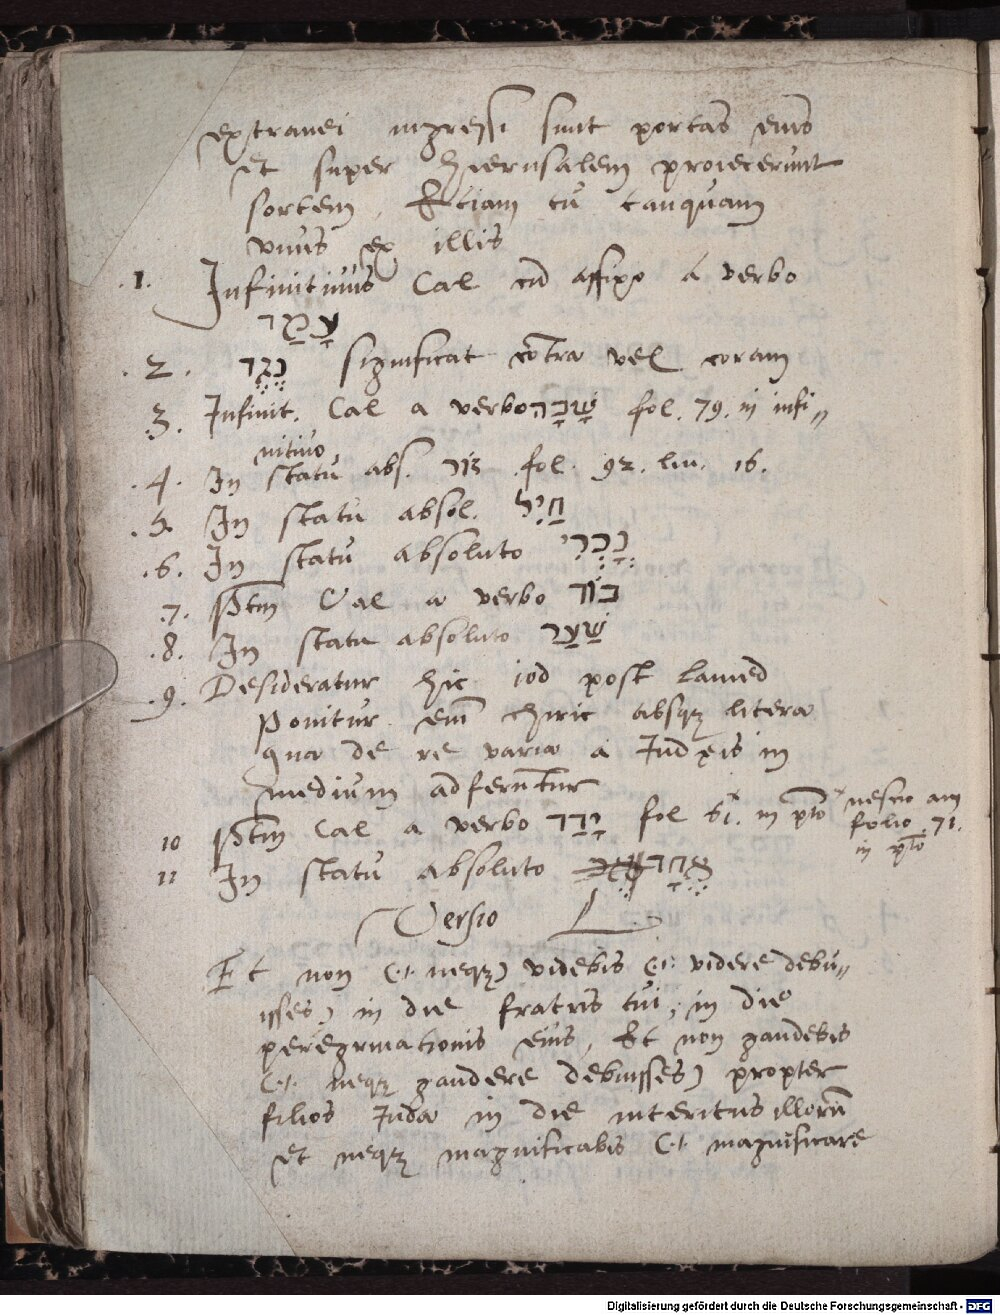 extranei ingressi sunt portas eius
et super Hierusalem proiecerunt
sortem, Etiam tu tanquam
vnus ex illis
.1. Infinitiuus Cal cū affixo a verbo
עָמַד
.2. נֶגֶד significat cōtra vel coram
.3. Infinit. Cal a verbo שָׁבָה fol. 79. in infi„
nitiuo
.4. In statu abs. זוּר fol. 92. lin. 16.
.5. In statu absol. חַיִל
.6. In statu absoluto נָכְרִי
.7. Ptm Cal a verbo בּוֹא
.8. In statu absoluto שַׁעַר
.9. Desideratur hic iod post lamed
Ponitur em̄ chiric absqꝫ litera
qua de re varia a Iudęis in
medium adferuntur
10 Ptm Cal a verbo יָדַד fol 61. in pto * nescio an
folio 71.
in pto
11 In statu absoluto אֶחָד
Versio
Et non (.t. neqꝫ) videbis (.t. videre debu„
isses) in die fratris tui, in die
peregrinationis eius, Et non gaudebis
(.t. neqꝫ gaudere debuisses) propter
filios Iuda in die interitus illorū
et neqꝫ magnificabis (.t. magnificare
Digitalisierung gefördert durch die Deutsche Forschungsgemeinschaft - DFG